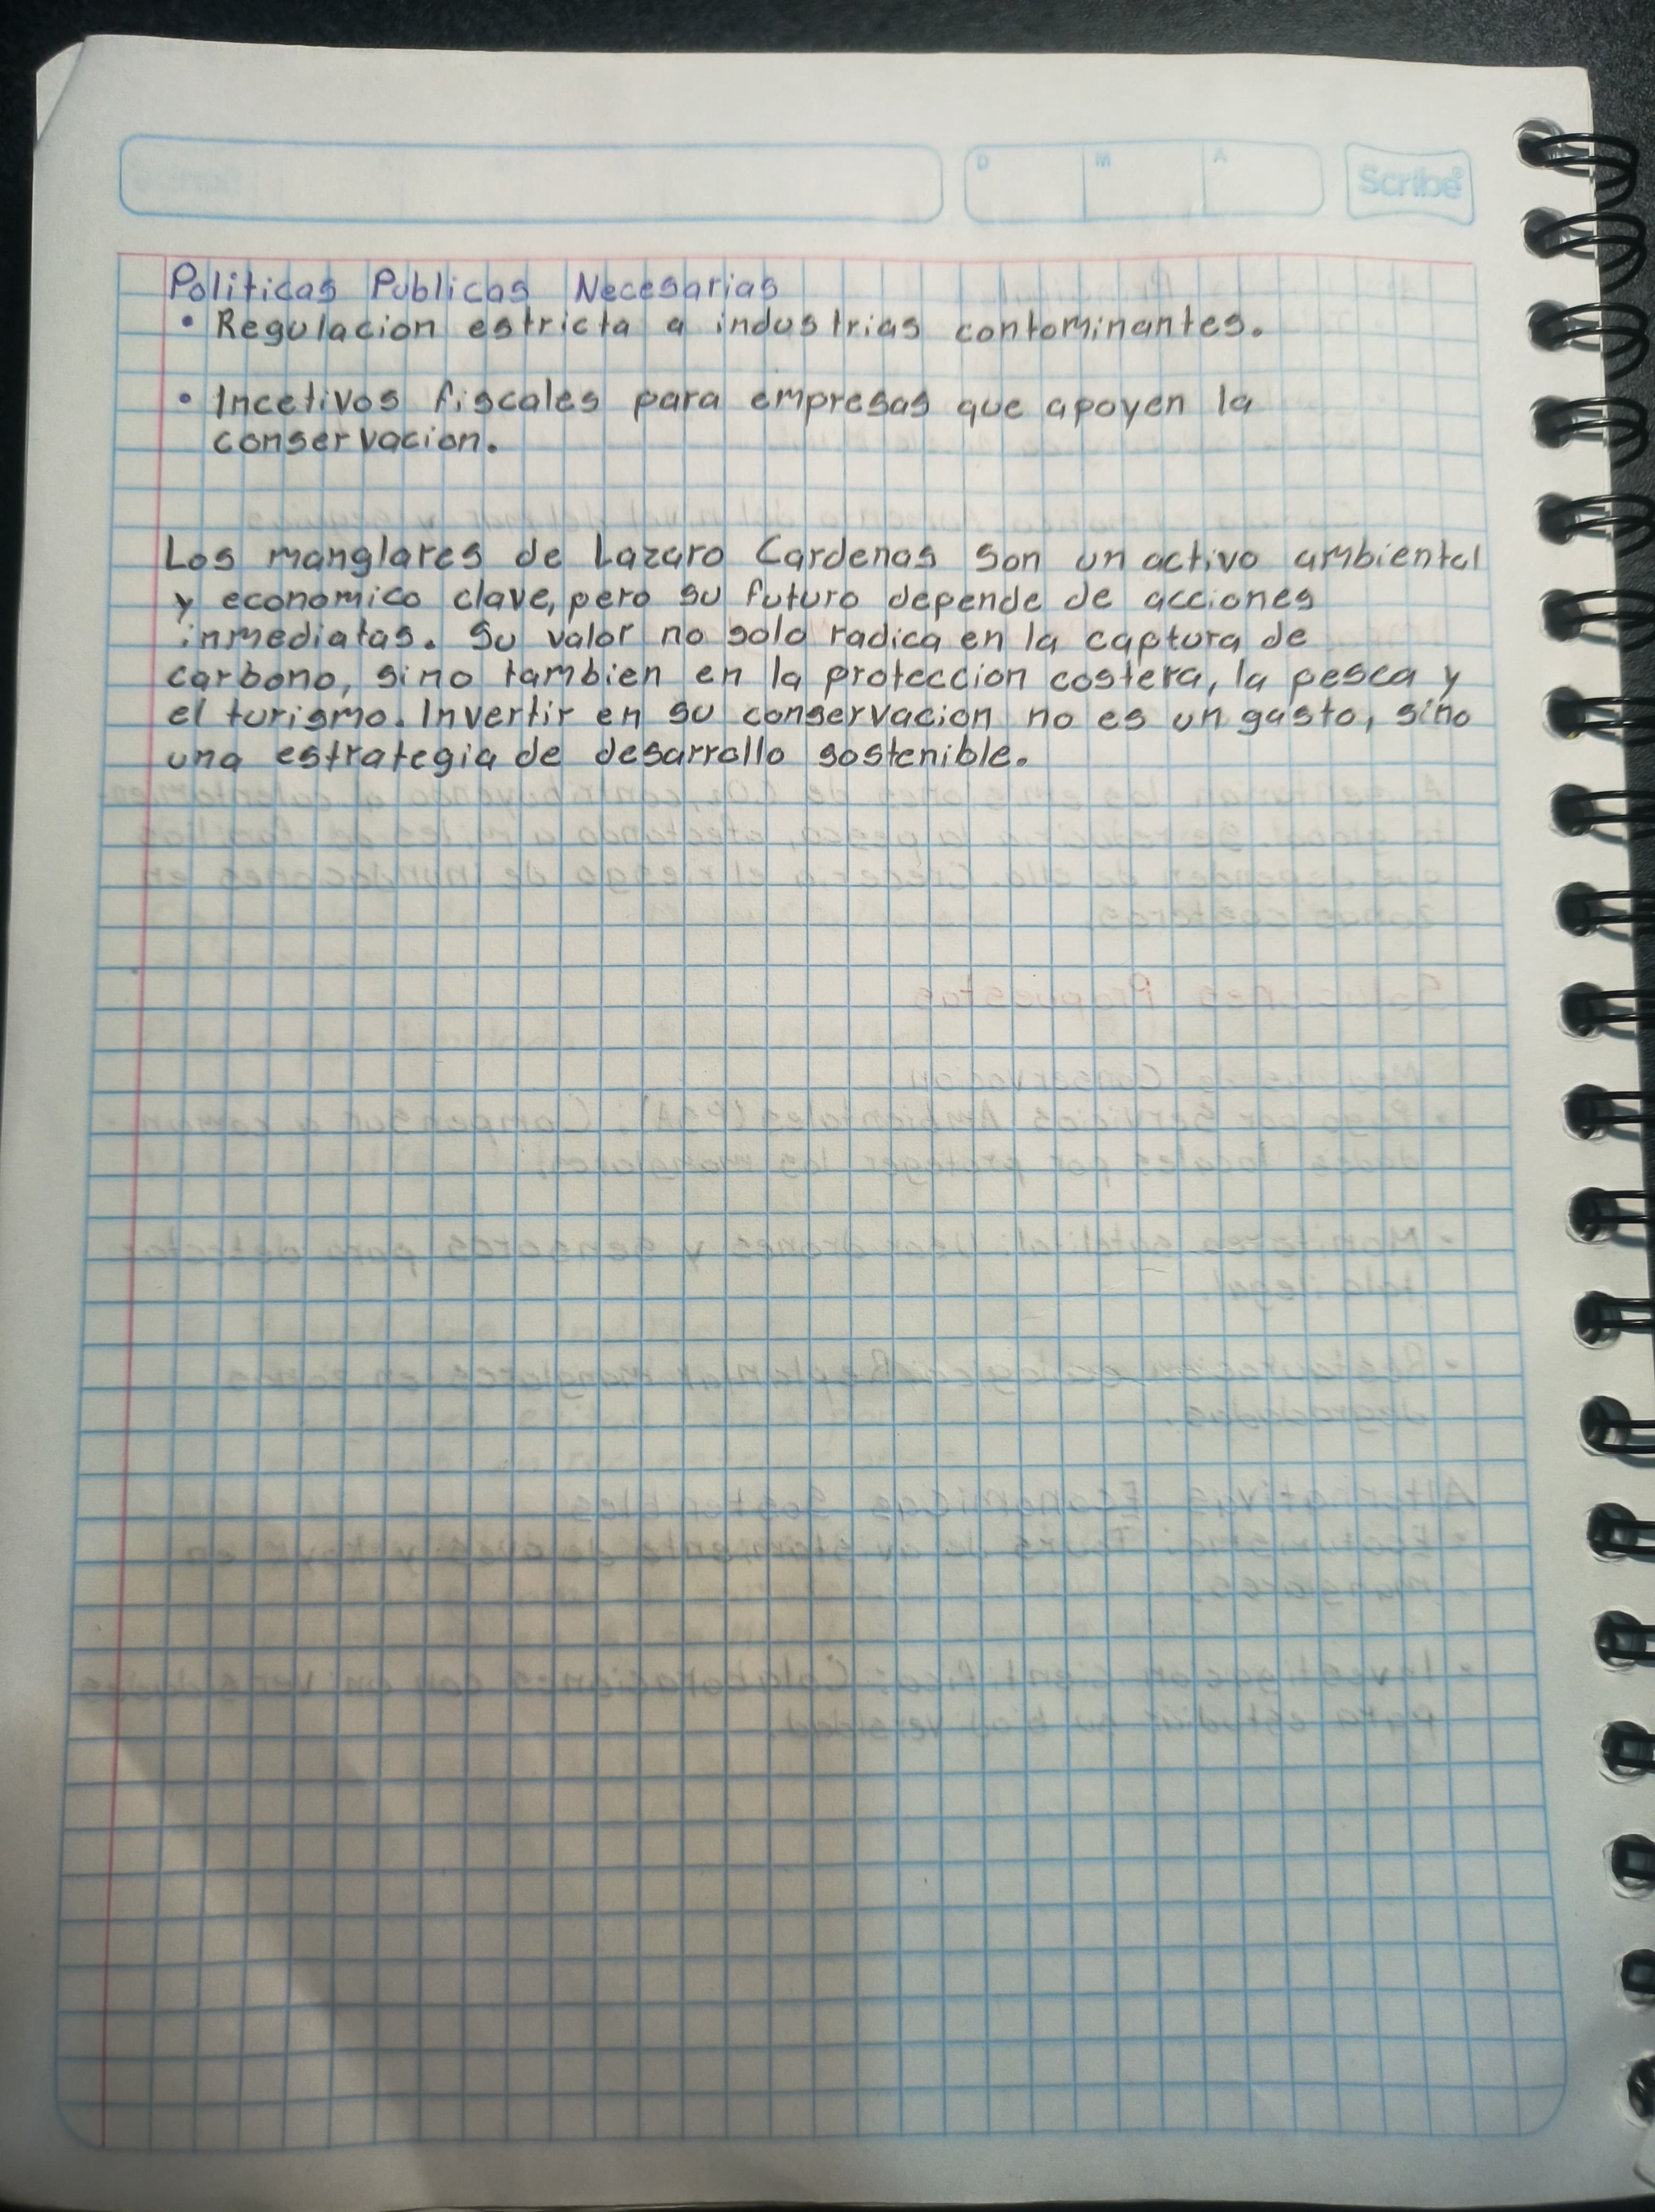 D M A Scribe
Politicas Publicas Necesarias
• Regulacion estricta a industrias contominantes.
• Incetivos fiscales para empresas que apoyen la
conservacion.
Los manglares de Lazaro Cardenas son un activo ambiental
y economico clave, pero su futuro depende de acciones
inmediatas. Su valor no solo radica en la captura de
carbono, sino tambien en la proteccion costera, la pesca y
el turismo. Invertir en su conservacion no es un gasto, sino
una estrategia de desarrollo sostenible.